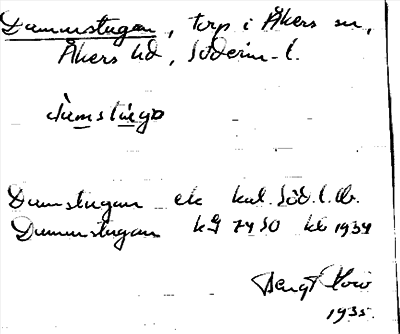 Dammstugan, torp i Åkers sn,
Åkers hd, Söderm. l.
damstugo
Damstugan ek kal. Söd. l. db.
Dammstugan
1934
Bengt
1935.